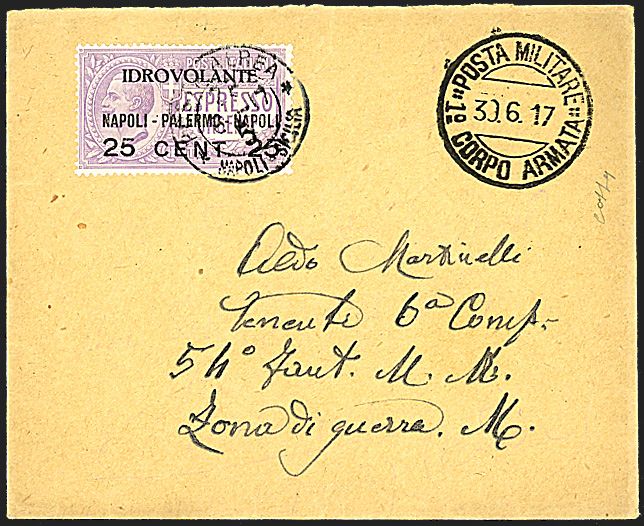 IDROVOLANTE
NAPOLI - PALERMO - NAPOLI
25 CENT. 25
ESPRESSO
NAPOLI SICILIA
*1º* POSTA MILITARE
30.6.17
CORPO ARMATA
Aldo Martinelli
tenente 6ª Comp.
54º Fant. M. M.
Zona di guerra. M.